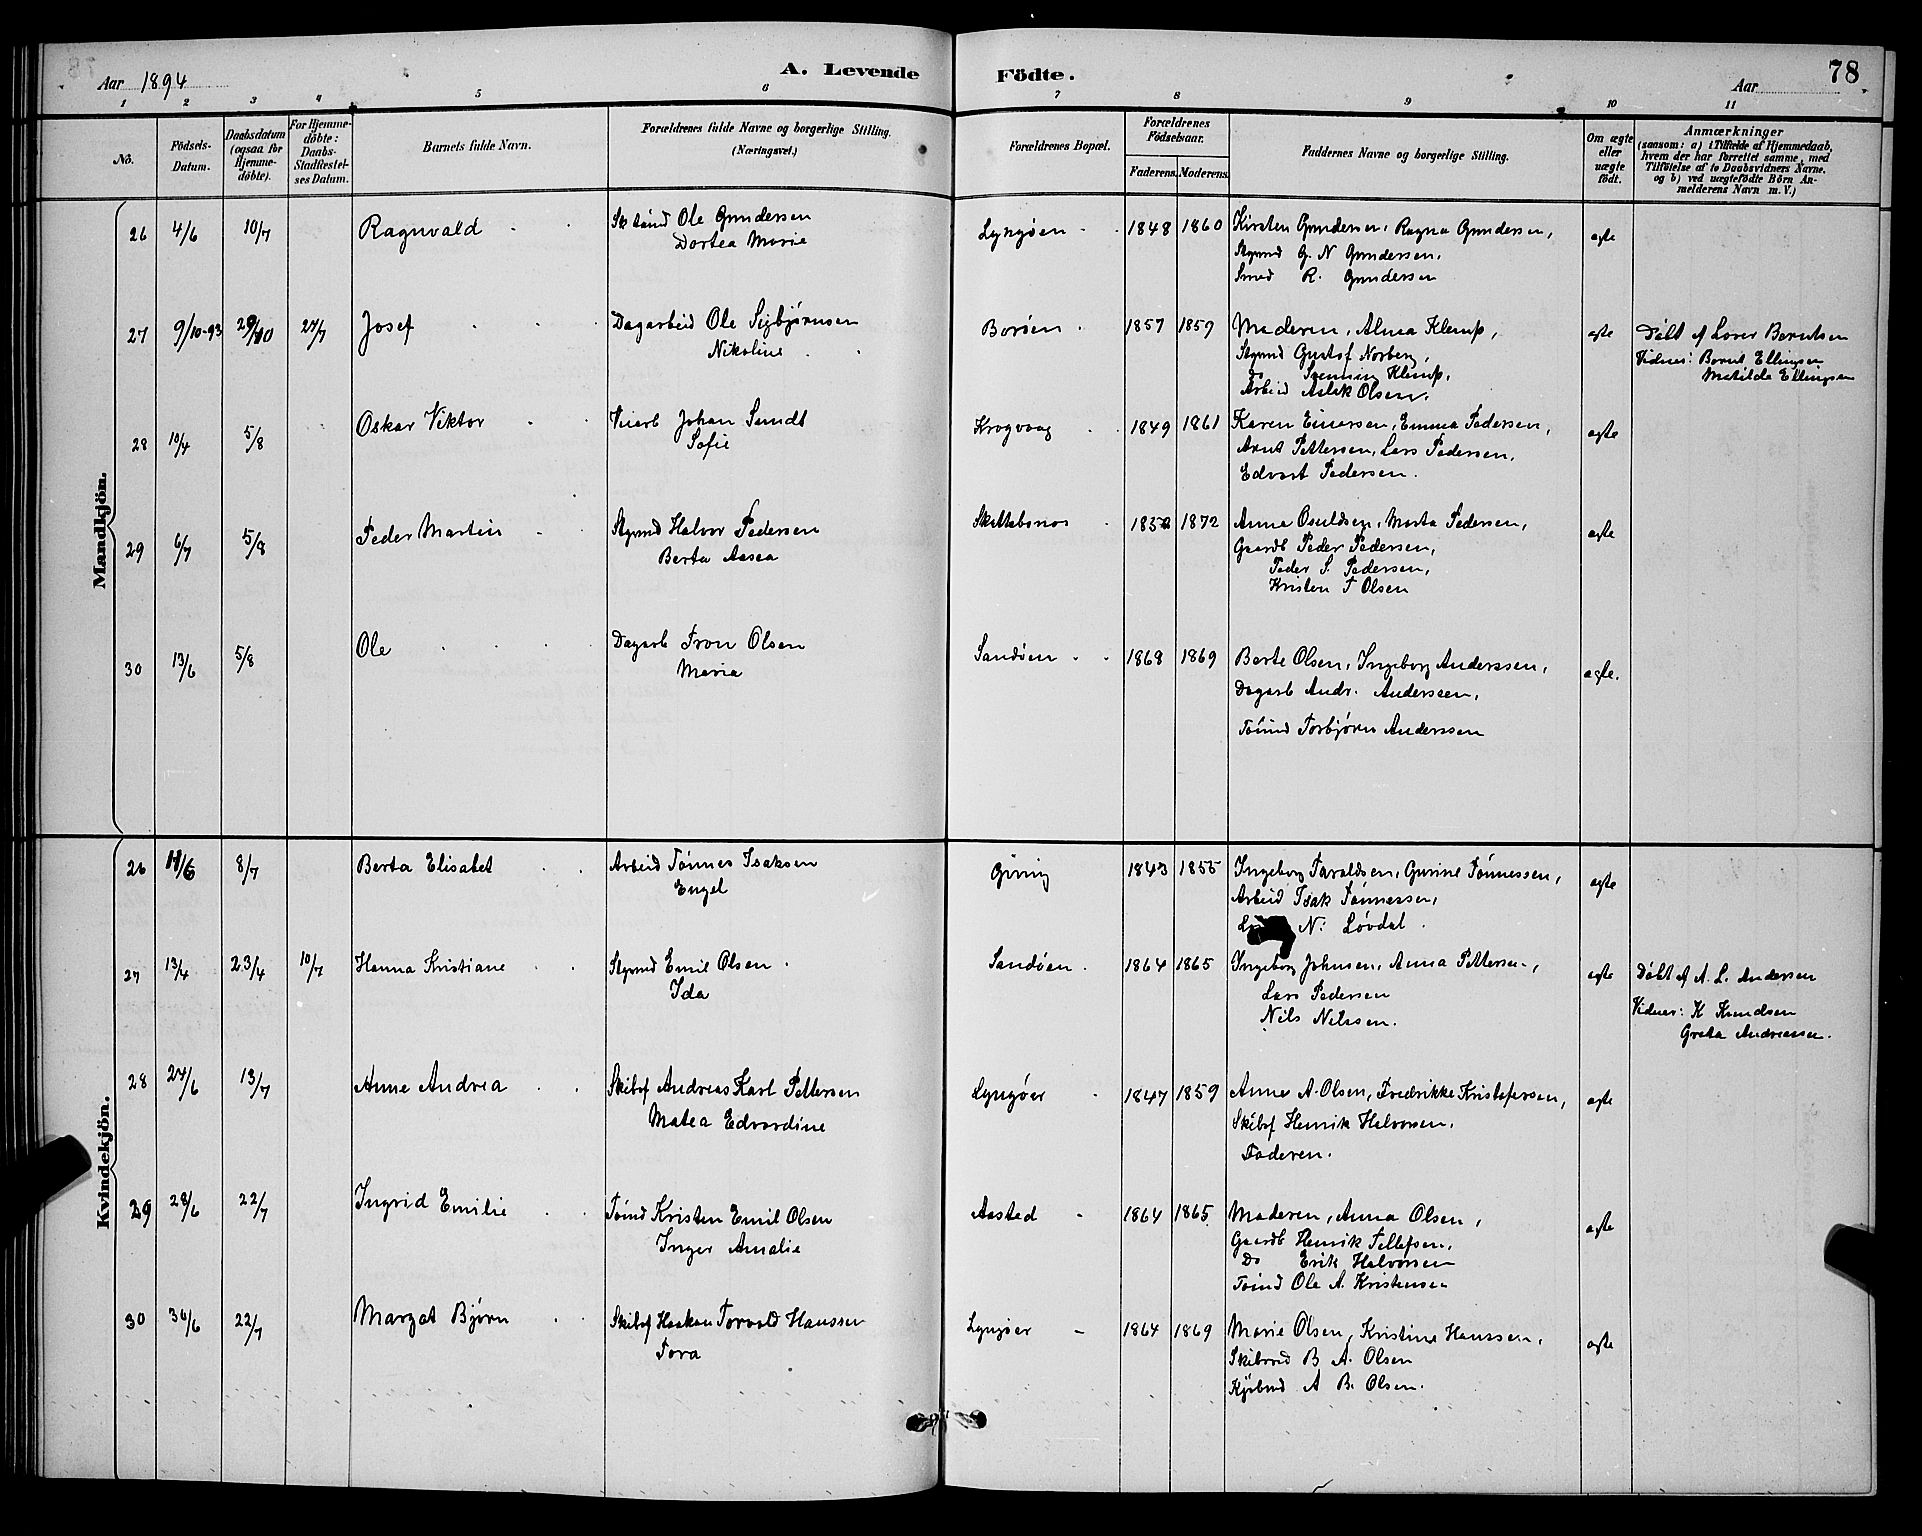 Aar 1894
A. Levende
Födte.
Aar
78
1 2 3 4 5 6 7 8 9 10 11
No.
Födsels-
Datum.
Daabsdatum
(ogsaa for
Hjemme-
döbte).
For Hjemme-
döbte:
Daabs-
Stadfæstel-
ses Datum.
Barnets fulde Navn.
Forældrenes fulde Navne og borgerlige Stilling.
(Næringsvei.)
Forældrenes Bopæl.
Forældrenes
Födselsaar.
Faderens. Moderens.
Faddernes Navne og borgerlige Stilling.
Om ægte
eller
uægte
födt.
Anmærkninger
(saasom: a) i Tilfælde af Hjemmedaab,
hvem der har forrettet samme, med
Tilföielse af to Daabsvidners Navne,
og b) ved uægtefödte Börn An-
melderens Navn m. V.)
Mandkjön.
26 4/6 10/7 Ragnvald Ole Gundersen Lyngøen 1848 1860 Kirsten Gundersen, Ragna Gundersen, ægte
Dortea Marie
Stymd G. N Gundersen,
Smed R. Gundersen
27 9/10-93 29/10 27/7 Josef Dagarbeid Ole Sigbjørnsen Borøen 1857 1859 Moderen, Alma Klemp, ægte Døbt af Lover Berntsen
Nikoline
Stymd Gustof Norberg,
Do Klemp,
Arbeid Aslak Olsen,
Vidner: Bernt Ellingsen
Matilde Ellingsen
28 10/4 5/8 Oskar Viktor Johan Sundt Krogvaag 1849 1861 Karen Einersen, Emma Pedersen, ægte
Sofie
Arnt Pettersen, Lars Pedersen,
Edvart Pedersen.
29 6/7 5/8 Peder Martin Stymd Halvor Pedersen 1872 Anna Osuldsen, Marta Pedersen, ægte
Berta Aasea
Gaardb Peder Pedersen,
Peder S. Pedersen,
Kristen T Olsen
30 13/6 5/8 Ole Dagarb Tron Olsen Sandøen 1868 1869 Berte Olsen, Ingeborg Anderssen, ægte.
Maria
Dagarb Andr. Anderssen,
Tømd Torbjørn Anderssen
Kvindekjön.
26 11/6 8/7 Berta Elisabet Arbeid Tønnes Isaksen Giving 1843 1855 Ingeborg Taraldsen, Gurine Tønnessen, ægte
Engel
Arbeid Isak Tønnessen,
N. Løvdal.
27 13/4 23/4 10/7 Hanna Kristiane Stymd Emil Olsen Sandøen 1864 1865 Ingeborg Johnsen, Anna Pettersen, ægte Døbt af A. L. Andersen
Ida
Lars Pedersen
Nils Nilssen.
Vidner: K Knudsen
Greta Andreassen.
28 24/6 13/7 Anne Andrea Skibsf Andreas Karl Pettersen Lyngøer 1847 1859 Anne A. Olsen, Fredrikke Kristofersen, ægte
Matea Edvardine
Skibsf Henrik Halvorsen,
Faderen.
29 28/6 22/7 Ingrid Emilie Tømd Kristen Emil Olsen Aasted 1864 1865 Moderen, Anna Olsen, ægte
Inger Amalie
Gaardb Henrik Tellefsen,
Do Erik Halvorsen
Tømd Ole A. Kristensen
30 30/6 22/7 Margot Bjørn Skibsf Haakon Torvald Hanssen Lyngøer 1864 1869 Marie Olsen, Kristine Hanssen, ægte
Tora
B A. Olsen
A B. Olsen.